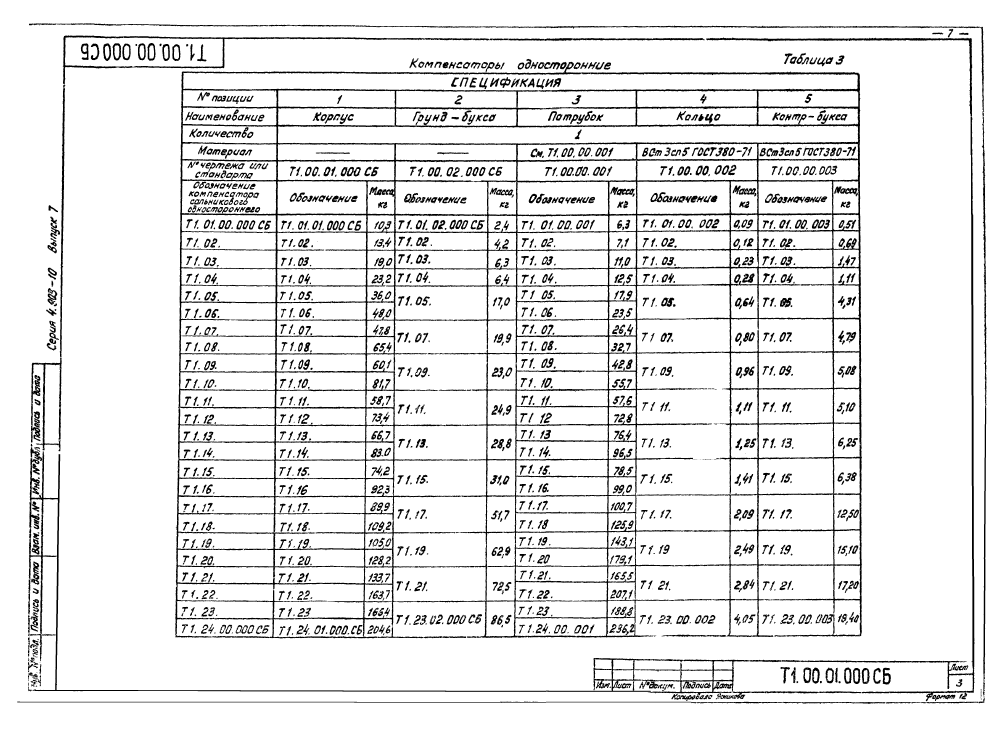 — 7 —
Т1. 00. 00. 000 СБ
Компенсаторы односторонние
Таблица 3
СПЕЦИФИКАЦИЯ
№ позиции 1 2 3 4 5
Наименование Корпус Грунд – букса Патрубок Кольцо Контр – букса
Количество 1
Материал — — См. Т1. 00. 00. 001 ВСт 3сп5 ГОСТ 380-71 ВСт 3сп5 ГОСТ 380-71
№ чертежа или стандарта Т1. 00. 01. 000 СБ Т1. 00. 02. 000 СБ Т1. 00.00. 001 Т1. 00. 00. 002 Т1. 00. 00. 003
Обозначение компенсатора сальникового одностороннего Обозначение Масса, кг Обозначение Масса, кг Обозначение Масса, кг Обозначение Масса, кг Обозначение Масса, кг
Т1. 01. 00. 000 СБ Т1. 01. 01. 000 СБ 10,3 Т1. 01. 02. 000 СБ 2,4 Т1. 01. 00. 001 6,3 Т1. 01. 00. 002 0,09 Т1. 01. 00. 003 0,51
Т1. 02. Т1. 02. 13,4 Т1. 02. 4,2 Т1. 02. 7,1 Т1. 02. 0,12 Т1. 02. 0,69
Т1. 03. Т1. 03. 19,0 Т1. 03. 6,3 Т1. 03. 11,0 Т1. 03. 0,23 Т1. 03. 1,47
Т1. 04. Т1. 04. 23,2 Т1. 04. 6,4 Т1. 04. 12,5 Т1. 04. 0,28 Т1. 04. 1,11
Т1. 05. Т1. 05. 36,0 Т1. 05. 17,0 Т1 05. 17,9 Т1. 05. 0,64 Т1. 05. 4,31
Т1. 06. Т1. 06. 48,0 Т1. 06. 23,5
Т1. 07. Т1. 07. 47,8 Т1. 07. 19,9 Т1. 07. 26,4 Т1 07. 0,80 Т1. 07. 4,79
Т1. 08. Т1. 08. 65,4 Т1. 08. 32,7
Т1. 09. Т1. 09. 60,1 Т1. 09. 23,0 Т1. 09. 42,8 Т1. 09. 0,96 Т1. 09. 5,08
Т1. 10. Т1. 10. 81,7 Т1. 10. 55,7
Т1. 11. Т1. 11. 58,7 Т1. 11. 24,9 Т1. 11. 57,6 Т1 11. 1,11 Т1. 11. 5,10
Т1. 12. Т1 12. 73,4 Т1 12 72,8
Т1. 13 Т1. 13. 66,7 Т1. 13. 28,8 Т1. 13 76,4 Т1. 13. 1,25 Т1. 13. 6,25
Т1. 14. Т1. 14. 83.0 Т1. 14. 96,5
Т1. 15 Т1. 15. 74,2 Т1. 15. 31,0 Т1. 15. 78,5 Т1. 15. 1,41 Т1. 15. 6,38
Т1. 16. Т1. 16 92,3 Т1. 16. 99,0
Т1. 17. Т1. 17. 89,9 Т1. 17. 51,7 Т1. 17. 100,7 Т1. 17. 2,09 Т1. 17. 12,50
Т1. 18. Т1. 18. 109,2 Т1. 18 125,9
Т1. 19. Т1. 19. 105,0 Т1. 19. 62,9 Т1. 19. 143,1 Т1. 19 2,49 Т1. 19. 15,10
Т1. 20. Т1. 20. 128,2 Т1. 20 179,1
Т1. 21. Т1. 21. 133,7 Т1. 21. 72,5 Т1. 21. 165,5 Т1 21. 2,84 Т1. 21. 17,20
Т1. 22. Т1. 22. 163,7 Т1. 22. 207,1
Т1. 23. Т1. 23 166,4 Т1. 23. 02. 000 СБ 86,5 Т1. 23. 188,8 Т1. 23. 00. 002 4,05 Т1. 23. 00. 003 19,40
Т1. 24. 00. 000 СБ Т1. 24. 01. 000. СБ 204,6 Т1. 24. 00. 001 236,2
Серия 4.903-10 Выпуск 7
Инв. № подл. Подпись и дата Взам. инв. № Инв. № дубл. Подпись и дата
Изм. Лист № докум. Подпись Дата
Т1. 00. 01. 000 СБ
Лист
3
Копировала
Формат 12